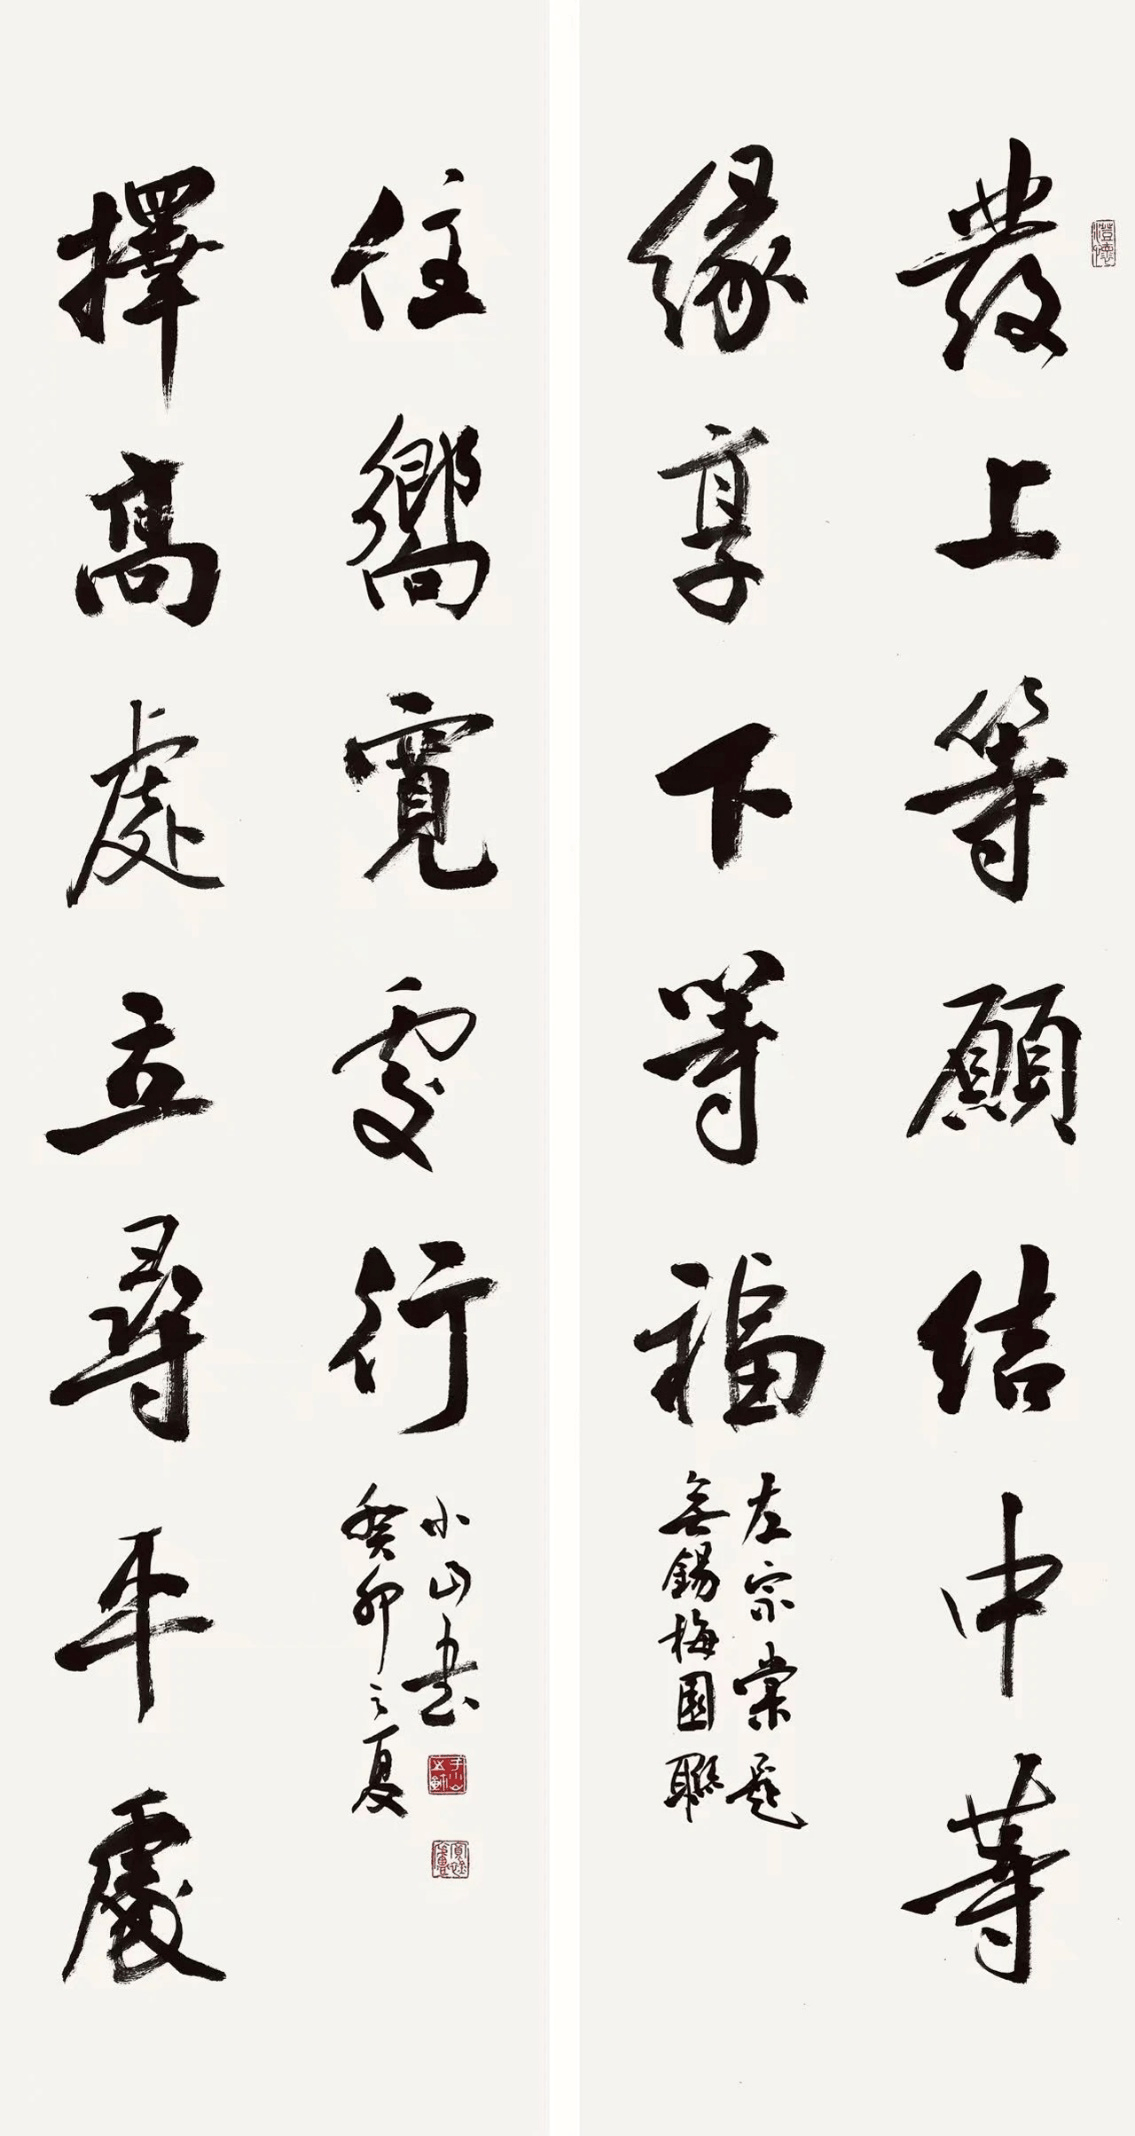 澄懷
發上等願結中等
緣享下等福
左宗棠題
無錫梅園聯
擇高處立尋平處
住嚮寬處行
癸卯之夏
小山書